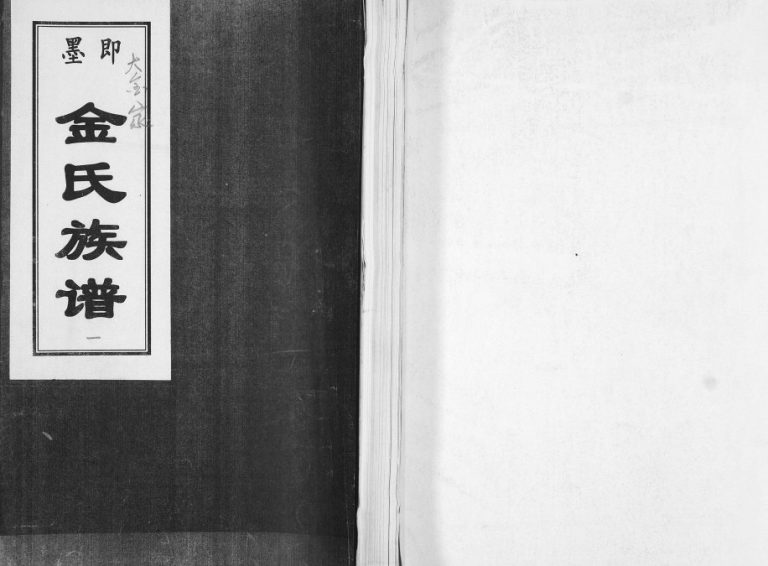 即墨
大金家
金氏族谱
一